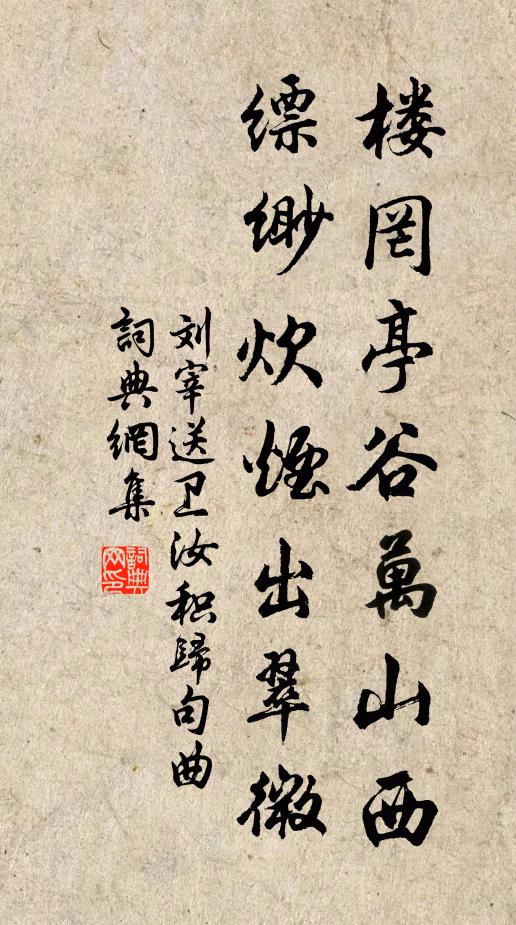 楼罔亭谷萬山西
缥缈炊煙出翠微
刘宰送卫汝积歸句曲
詞典網集
詞典网印